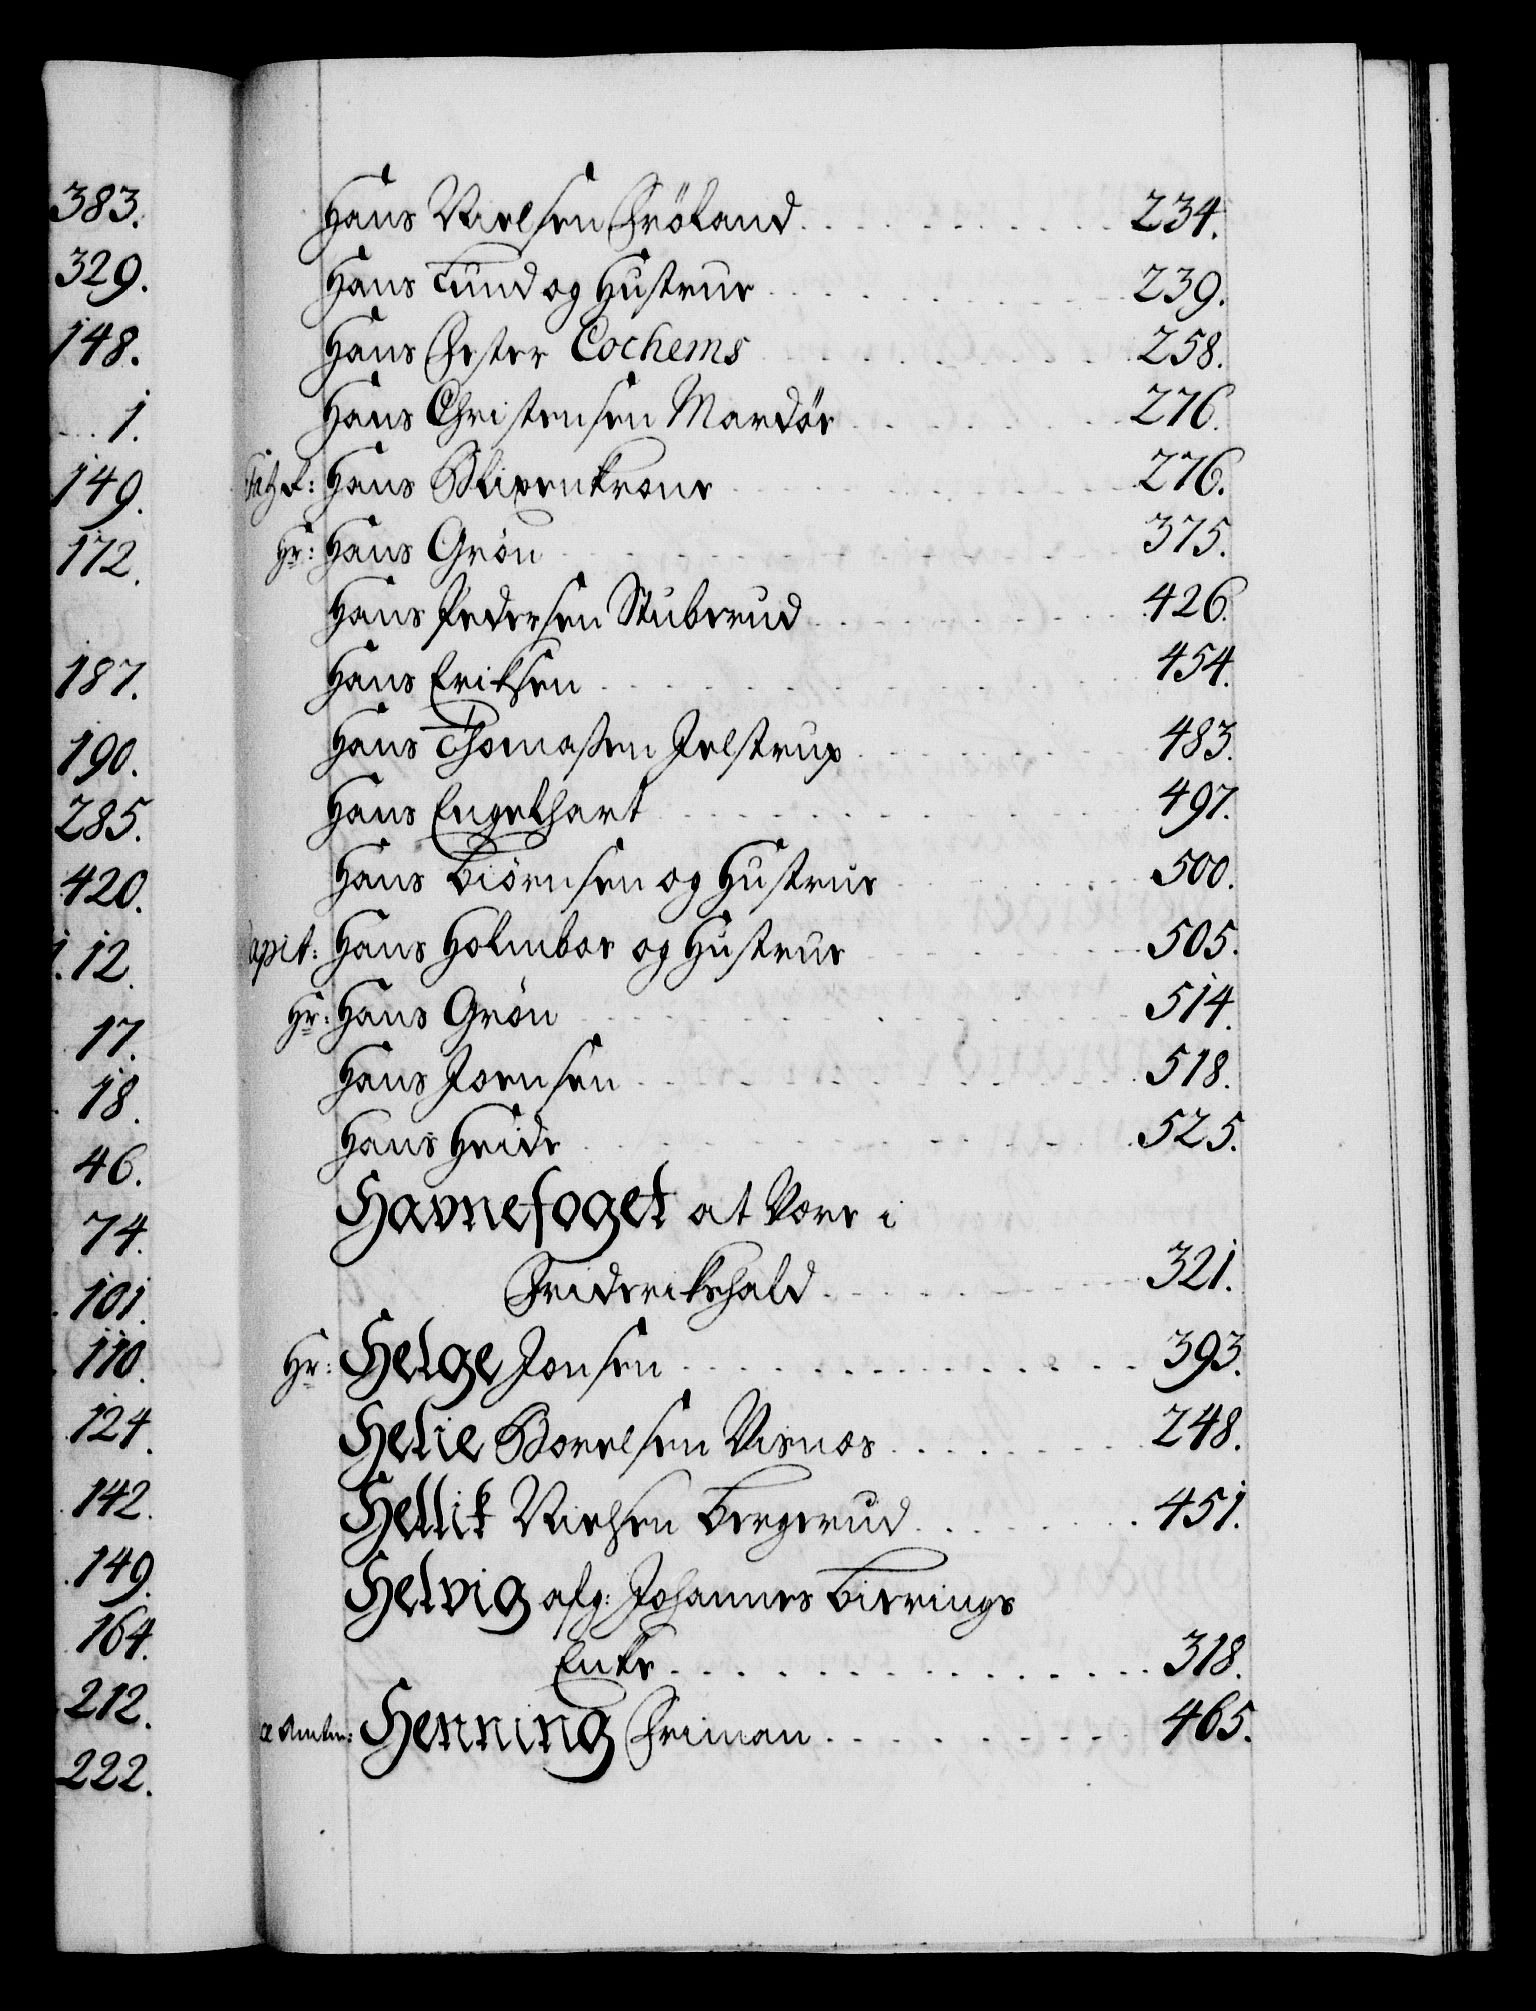 383.
329.
148.
1.
149.
172.
187.
190.
285.
420.
1.12.
17.
18.
46.
74.
101.
110.
124.
142.
149.
164.
212.
222.
Hans Nielsen Fröland. 234.
Hans Lund og Hustrue 239.
Hans Pester Cochems 258.
Hans Christensen Mardör 276.
Hans Blixenkrone 276.
Hr: Hans Grön 375.
Hans Pedersen Stuberud 426.
Hans Eriksen 454.
Hans Thomaßen Jelstrup 483.
Hans Engelhart 497.
Hans Biörnsen og Hustrue 500.
apit: Hans Holmboe og Hustrue 505.
Hr: Hans Grön 514.
Hans Joensen 518.
Hans Heide 525.
Havnefoget at være i
Friderikshald 321.
Hr: Helge Jonsen 393.
Helie Boeelsen Visnæs 248.
Hellik Nielsen Bergerud 451.
Helvig afg: Johannes Bierings
Enke 318.
Henning Friman 465.